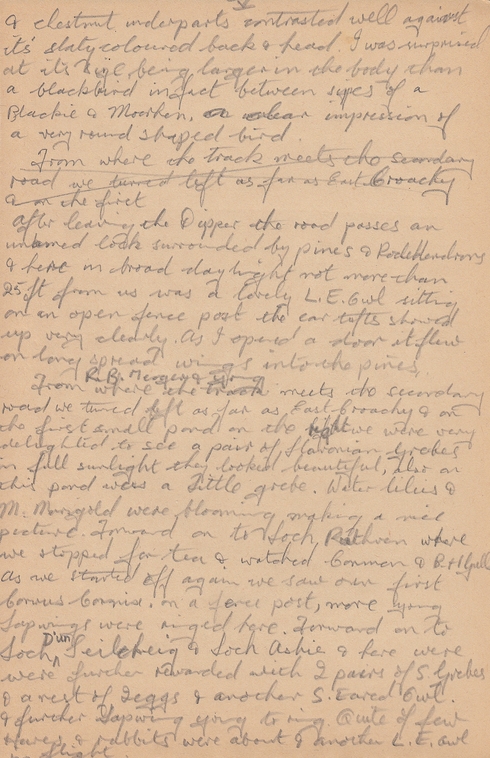 & chestnut underparts contrasted well against
its' slaty coloured back & head. I was surprised
at its' size being larger in the body than
a blackbird infact between sizes of a
Blackie & Moorhen, clear impression of
a very round shaped bird.
From where the track meets the secondary
road we turned left as far as East Croachy
& on the first
After leaving the Dipper the road passes an
unnamed loch surrounded by pines & Rhodehendrons
& here in broad daylight not more than
25ft from us was a lovely L.E. Owl sitting
on an open fence post the ear tufts showed
up very clearly. As I opened a door it flew
on long spread wings into the pines.
R.B.
From where the track meets the secondary
road we turned left as far as East Croachy & on
the first small pond on the right we were very
delighted to see a pair of Slavonian Grebes
in full sunlight they looked beautiful, also on
this pond was a Little grebe. Water lilies &
M. Marigold were blooming making a nice
picture. Forward on to Loch Ruthven where
we stopped for tea & watched Common & B.H. Gull
As we started off again we saw our first
Corvus Cornix, on a fence post, more young
Lapwings were ringed here. Forward on to
Loch D'un Seilcheig & Loch Ashie & here were
were further rewarded with 2 pairs of S. Grebes
& a nest of 2 eggs & another S. Eared Owl.
& further Lapwing young to ring. Quite of few
Hares & rabbits were about & another L.E. owl
in flight.